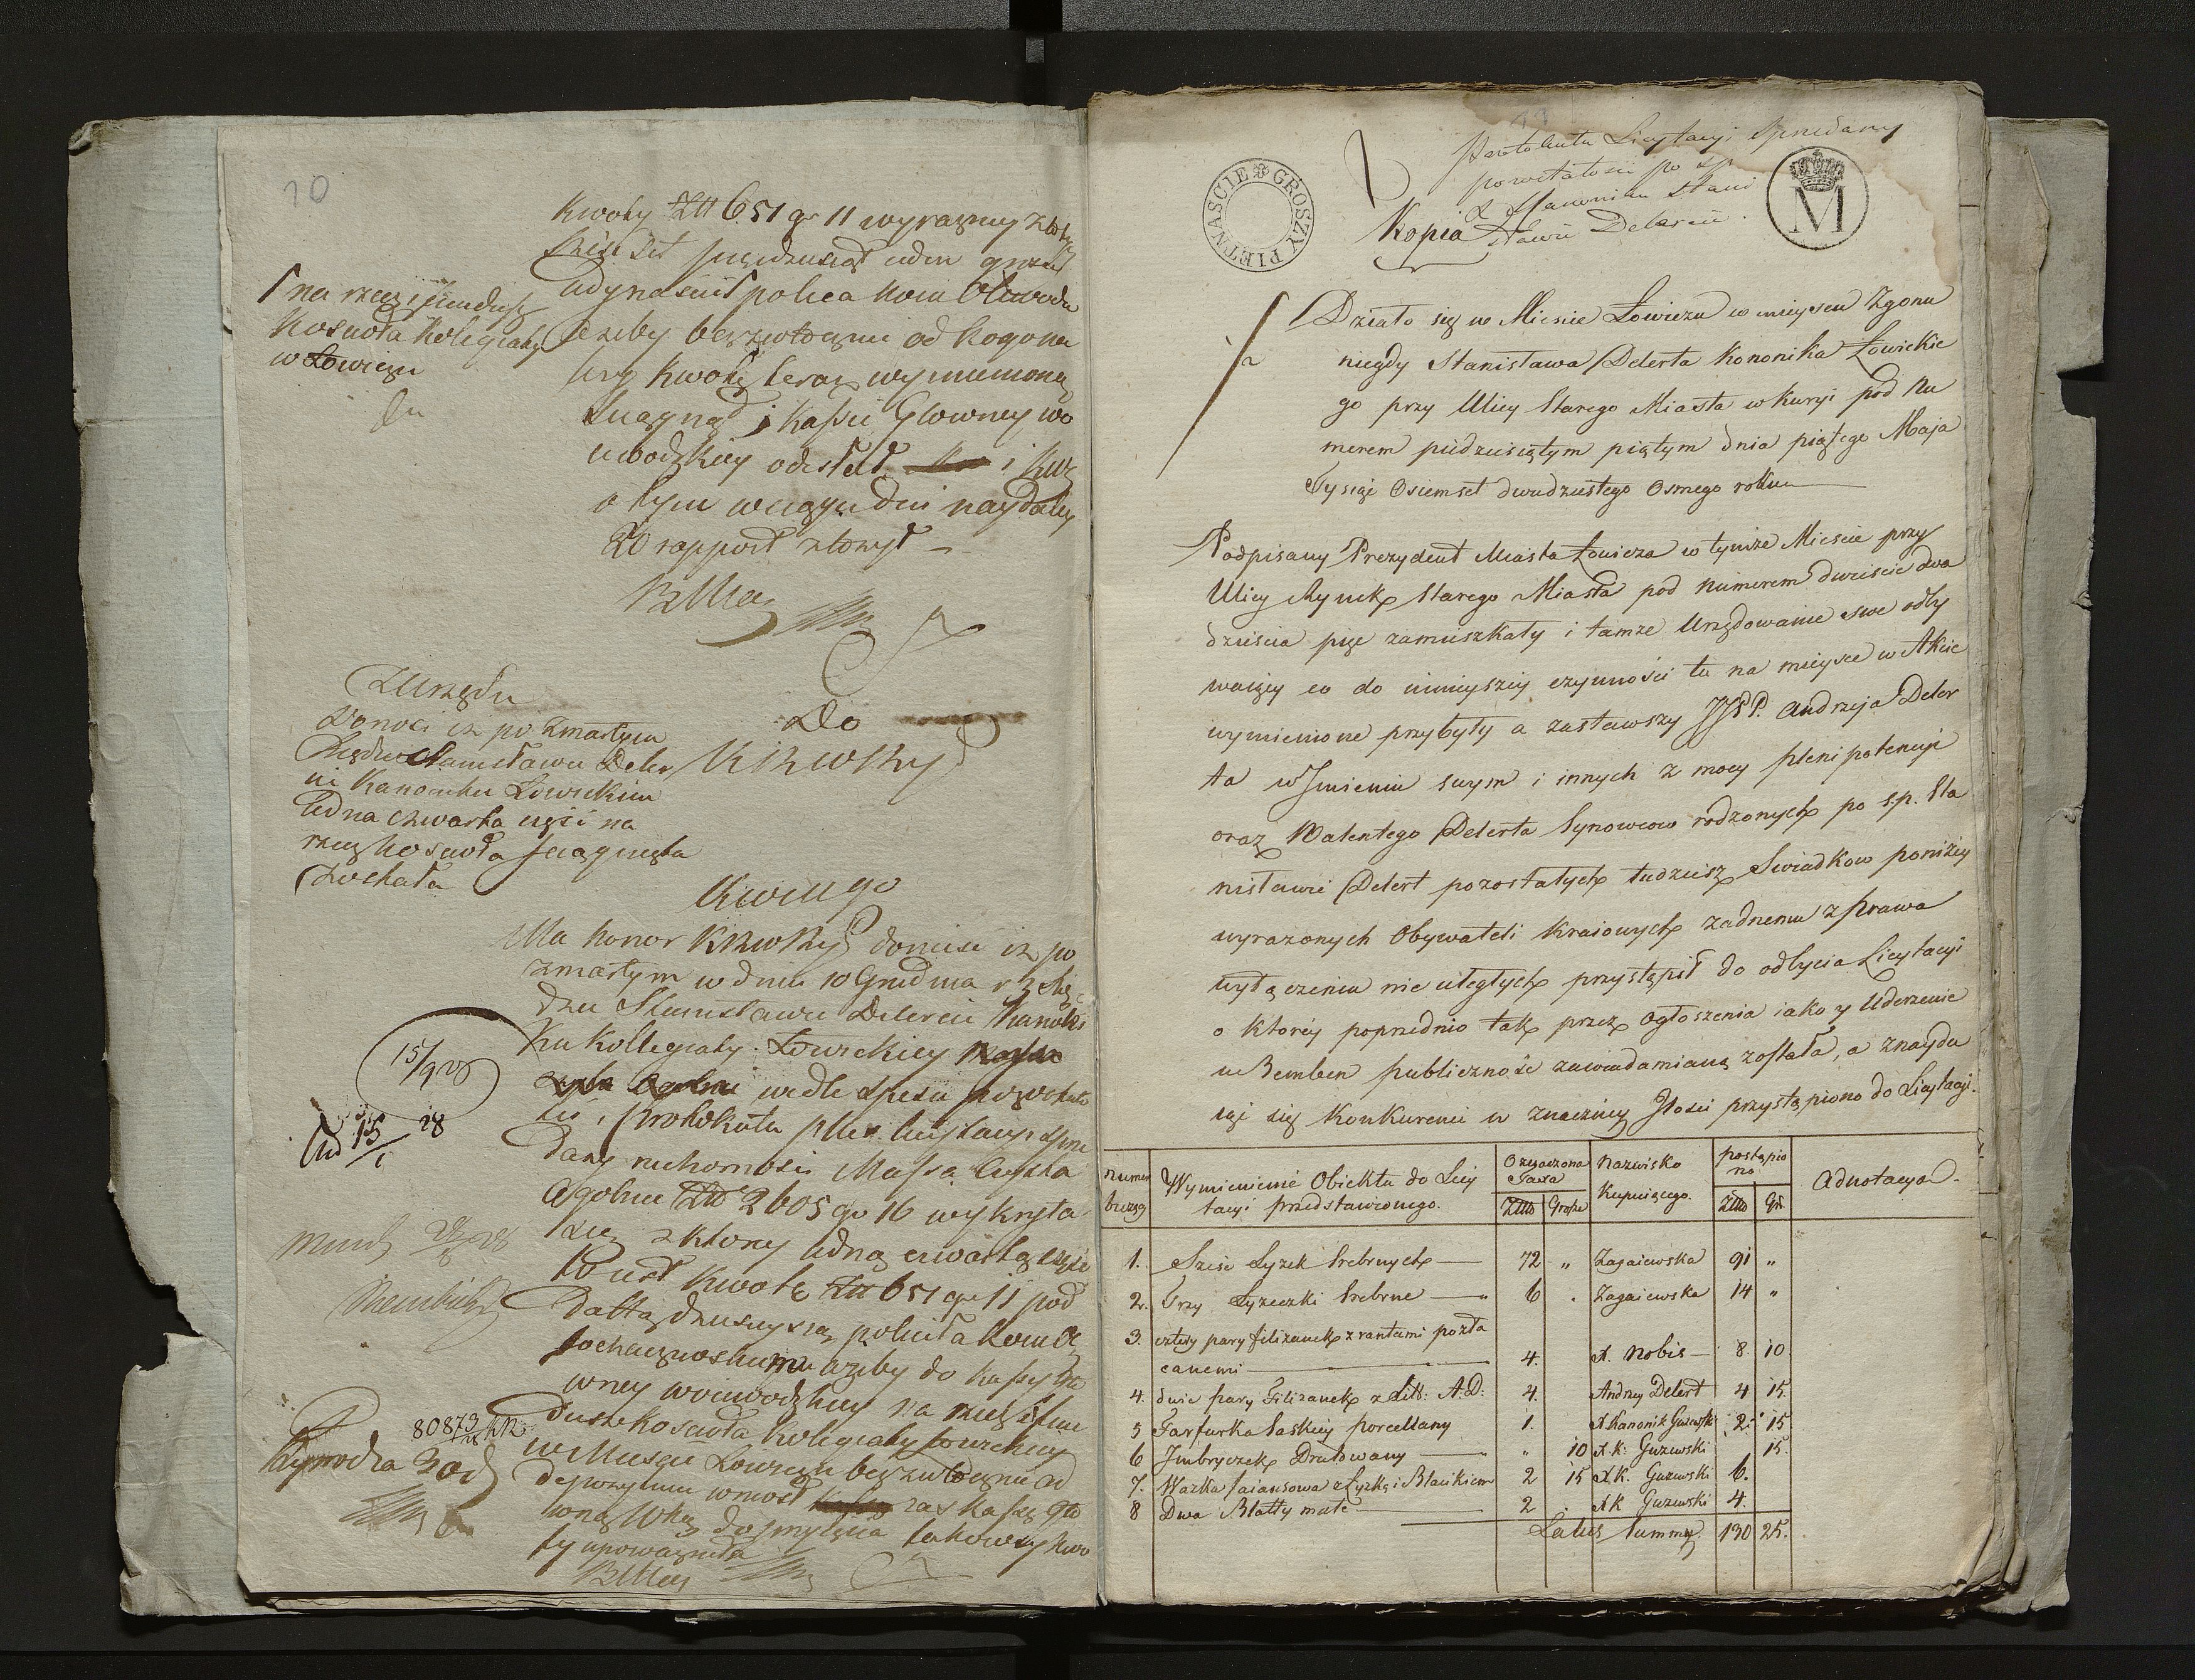 10
Kwoty Złł 651 gr 11 wyraźniey złoty
sześćset pięćdziesiąt ieden groszy
iedynaście poleca Kom Obwodu
ażeby bezzwłocznie od kogo na
leży kwotę teraz wymienioną
ściągnął i Kassie Głowney wo
iewodzkiey odesłał i KWz
o tym w ciągu dni naydaley
20 rapport złożył
na rzecz funduszu
Kościoła Kolegiaty
w Łowiczu
Z Urzędu
Donosi iż po zmarłym
Xiędzu Stanisławie Deler
cie Kanoniku Łowickim
iedna czwarta część na
rzecz kościoła ściągnięta
została
Do
KRWRiy
Ma honor KRWRiy donieść iż po
zmarłym w dniu 10 Grudnia r z Xię
dzu Stanisławie Delercie Kanoni
ku Kollegiaty Łowickiey
wedle spisu pozostało
ści i Protokułu plus licytacyi sprze
daży ruchomości Massa czysta
ogolna Złł 2605 gr 16 wykryta
z ktorey iedną czwartą część
to iest kwotę Złł 651 gr 11 pod
dattą dzisieyszą poleciła Kom O
Sochaczewskiemu ażeby do kassy Gło
wney woiewodzkiey na rzecz fun
duszu kościoła Kolegiaty Łowickiey
w Mieście Łowiczu bezzwłocznie ad
depozytum wniosł zaś kassę Gło
wną WMą do przyięcia takowey kwo
ty upoważniła
15/9
15/1 28
80873
11
Protokułu Licytacyi Sprzedaży
pozostałości po śp
X Kanoniku Stani
sławie Delercie.
PIETNASCIE GROSZY
M
Kopia
Działo się w Mieście Łowiczu w mieyscu Zgonu
niegdy Stanisława Delerta Kononika Łowickie
go przy Ulicy Starego Miasta w kuryi pod Nu
merem pięćdziesiątym piątym dnia piątego Maja
Tysiąc Osiemset dwudziestego Osmego roku
Podpisany Prezydent Miasta Łowicza w tymże Mieście przy
Ulicy Rynek Starego Miasta pod Numerem dwieście dwa
dzieścia pięć zamieszkały i tamże Urzędowanie swe odby
waiący co do ninieyszey czynności tu na mieysce w Akcie
wymienione przybyły a zastawszy JJPP. Andrzeja Deler
ta w Jmieniu swym i innych z mocy plenipotencyi
oraz Walentego Delerta Synowcow rodzonych po s.p. Sta
nisławie Delert pozostałych tudzież Swiadkow poniżey
wyrażonych Obywateli Kraiowych żadnemu z prawa
wyłączeniu nie uległych przystąpił do odbycia Licytacyi
o ktorey poprzednio tak przez ogłoszenia iako y Uderzenie
w Bemben publiczność zawiadamianą została, a znaydu
iąc się Konkurenci w znaczney Jlości przystąpiono do Licytacyi.
Numer bieżący | Wymienienie Obiektu do Licy tacyi przedstawionego. | Oznaczona Taxa Złłł Grosze | Nazwisko Kupuiącego. | postąpio no Złłł Gr. | Adnotacya.
1. Sześć Łyżek Srebrnych — 72 „ Zagaiewska 91 „
2. Trzy Łyżeczki Srebrne — 6 . Zagaiewska 14 „
3. cztery pary filiżanek z rantami pozła
canemi — 4. X. Nobis — 8. 10.
4. dwie pary Filiżanek z Litt: A.D: 4. Andrzey Delert 4 15.
5 Farfurka Saskiey porcellany 1. X. Kanonik Guzewski 2. 15.
6 Jmbryczek Drutowany — „ 10 X. K: Guzewski 15.
7. Wazka faiansowa z Łyżką i Blacikiem 2 15 X K. Guzewski 6.
8 Dwa Blatty małe — 2 . X K Guzewski 4.
Latus Summy. 130 25.